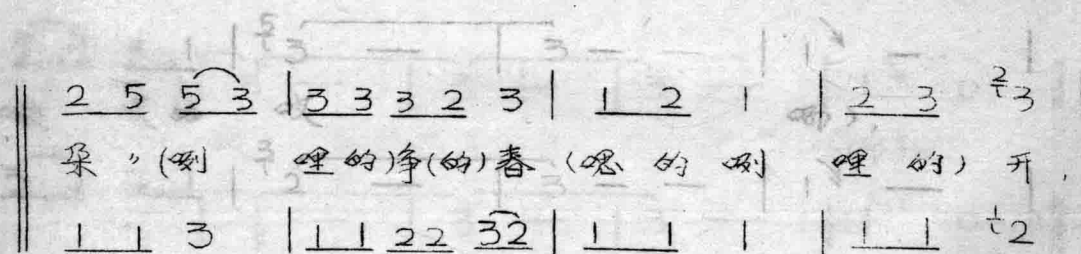 2 5 5 3 | 3 3 3 2 3 | 1 2 1 | 2 3 ²3
朵〃(咧 哩的)争(的)春(嗯的咧 哩的)开,
1 1 3 | 1 1 2 2 3 2 | 1 1 1 | 1 1 ¹2